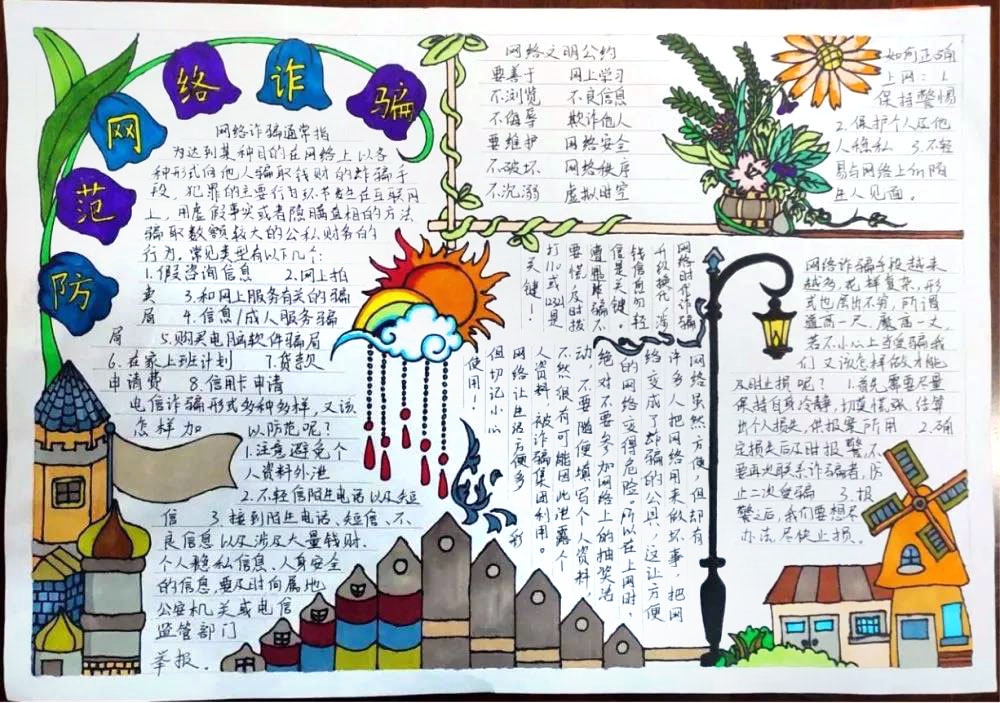 防范网络诈骗
网络诈骗通常指
为达到某种目的在网络上以各
种形式向他人骗取钱财的诈骗手
段，犯罪的主要行为环节发生在互联网
上，用虚假事实或者隐瞒真相的方法
骗取数额较大的公私财务的
行为。常见类型有以下几个：
1.假冒咨询信息 2.网上拍
卖 3.和网上服务有关的骗
局 4.信息/成人服务骗
局 5.购买电脑软件骗局
6.在家上班计划 7.贷款
申请费 8.信用卡申请
电信诈骗形式多种多样，又该
怎样加 以防范呢？
1.注意避免个
人资料外泄
2.不轻信陌生电话以及短
信 3.接到陌生电话、短信、不
良信息以及涉及大量钱财、
个人隐私信息、人身安全
的信息，要及时向属地
公安机关或电信
监管部门
举报。
网络文明公约
要善于 网上学习
不浏览 不良信息
不侮辱 欺诈他人
要维护 网络安全
不破坏 网络秩序
不沉溺 虚拟时空
如何正确
上网：1.
保持警惕
2.保护个人及他
人隐私 3.不轻
易与网络上的陌
生人见面。
网络时代诈骗
升级换代，淘
钱信息勿轻
信是关键。
遭遇诈骗不
要慌，及时拨
打110或123是
关键！
网络虽然方便，但却有
许多人把网络用来做坏事，把网
络变成了诈骗的公具，这让方便
的网络变得危险。所以在上网时，
绝对不要参加网络上的抽奖活
动，不要随便填写个人资料，
不然很有可能因此泄露个
人资料，被诈骗集团利用。
网络让生活方便多彩
但切记小心
使用！
网络诈骗手段越来
越多，花样复杂，形
式也层出不穷，所谓
道高一尺，魔高一丈，
若不小心上当受骗我
们又该怎样做才能
及时止损呢？ 1.首先需要尽量
保持自身冷静，切莫慌张，结算
出个人损失，供报案所用 2.确
定损失后及时报警，不
要再次联系诈骗者，防
止二次受骗 3.报
警之后，我们要想尽
办法尽快止损。